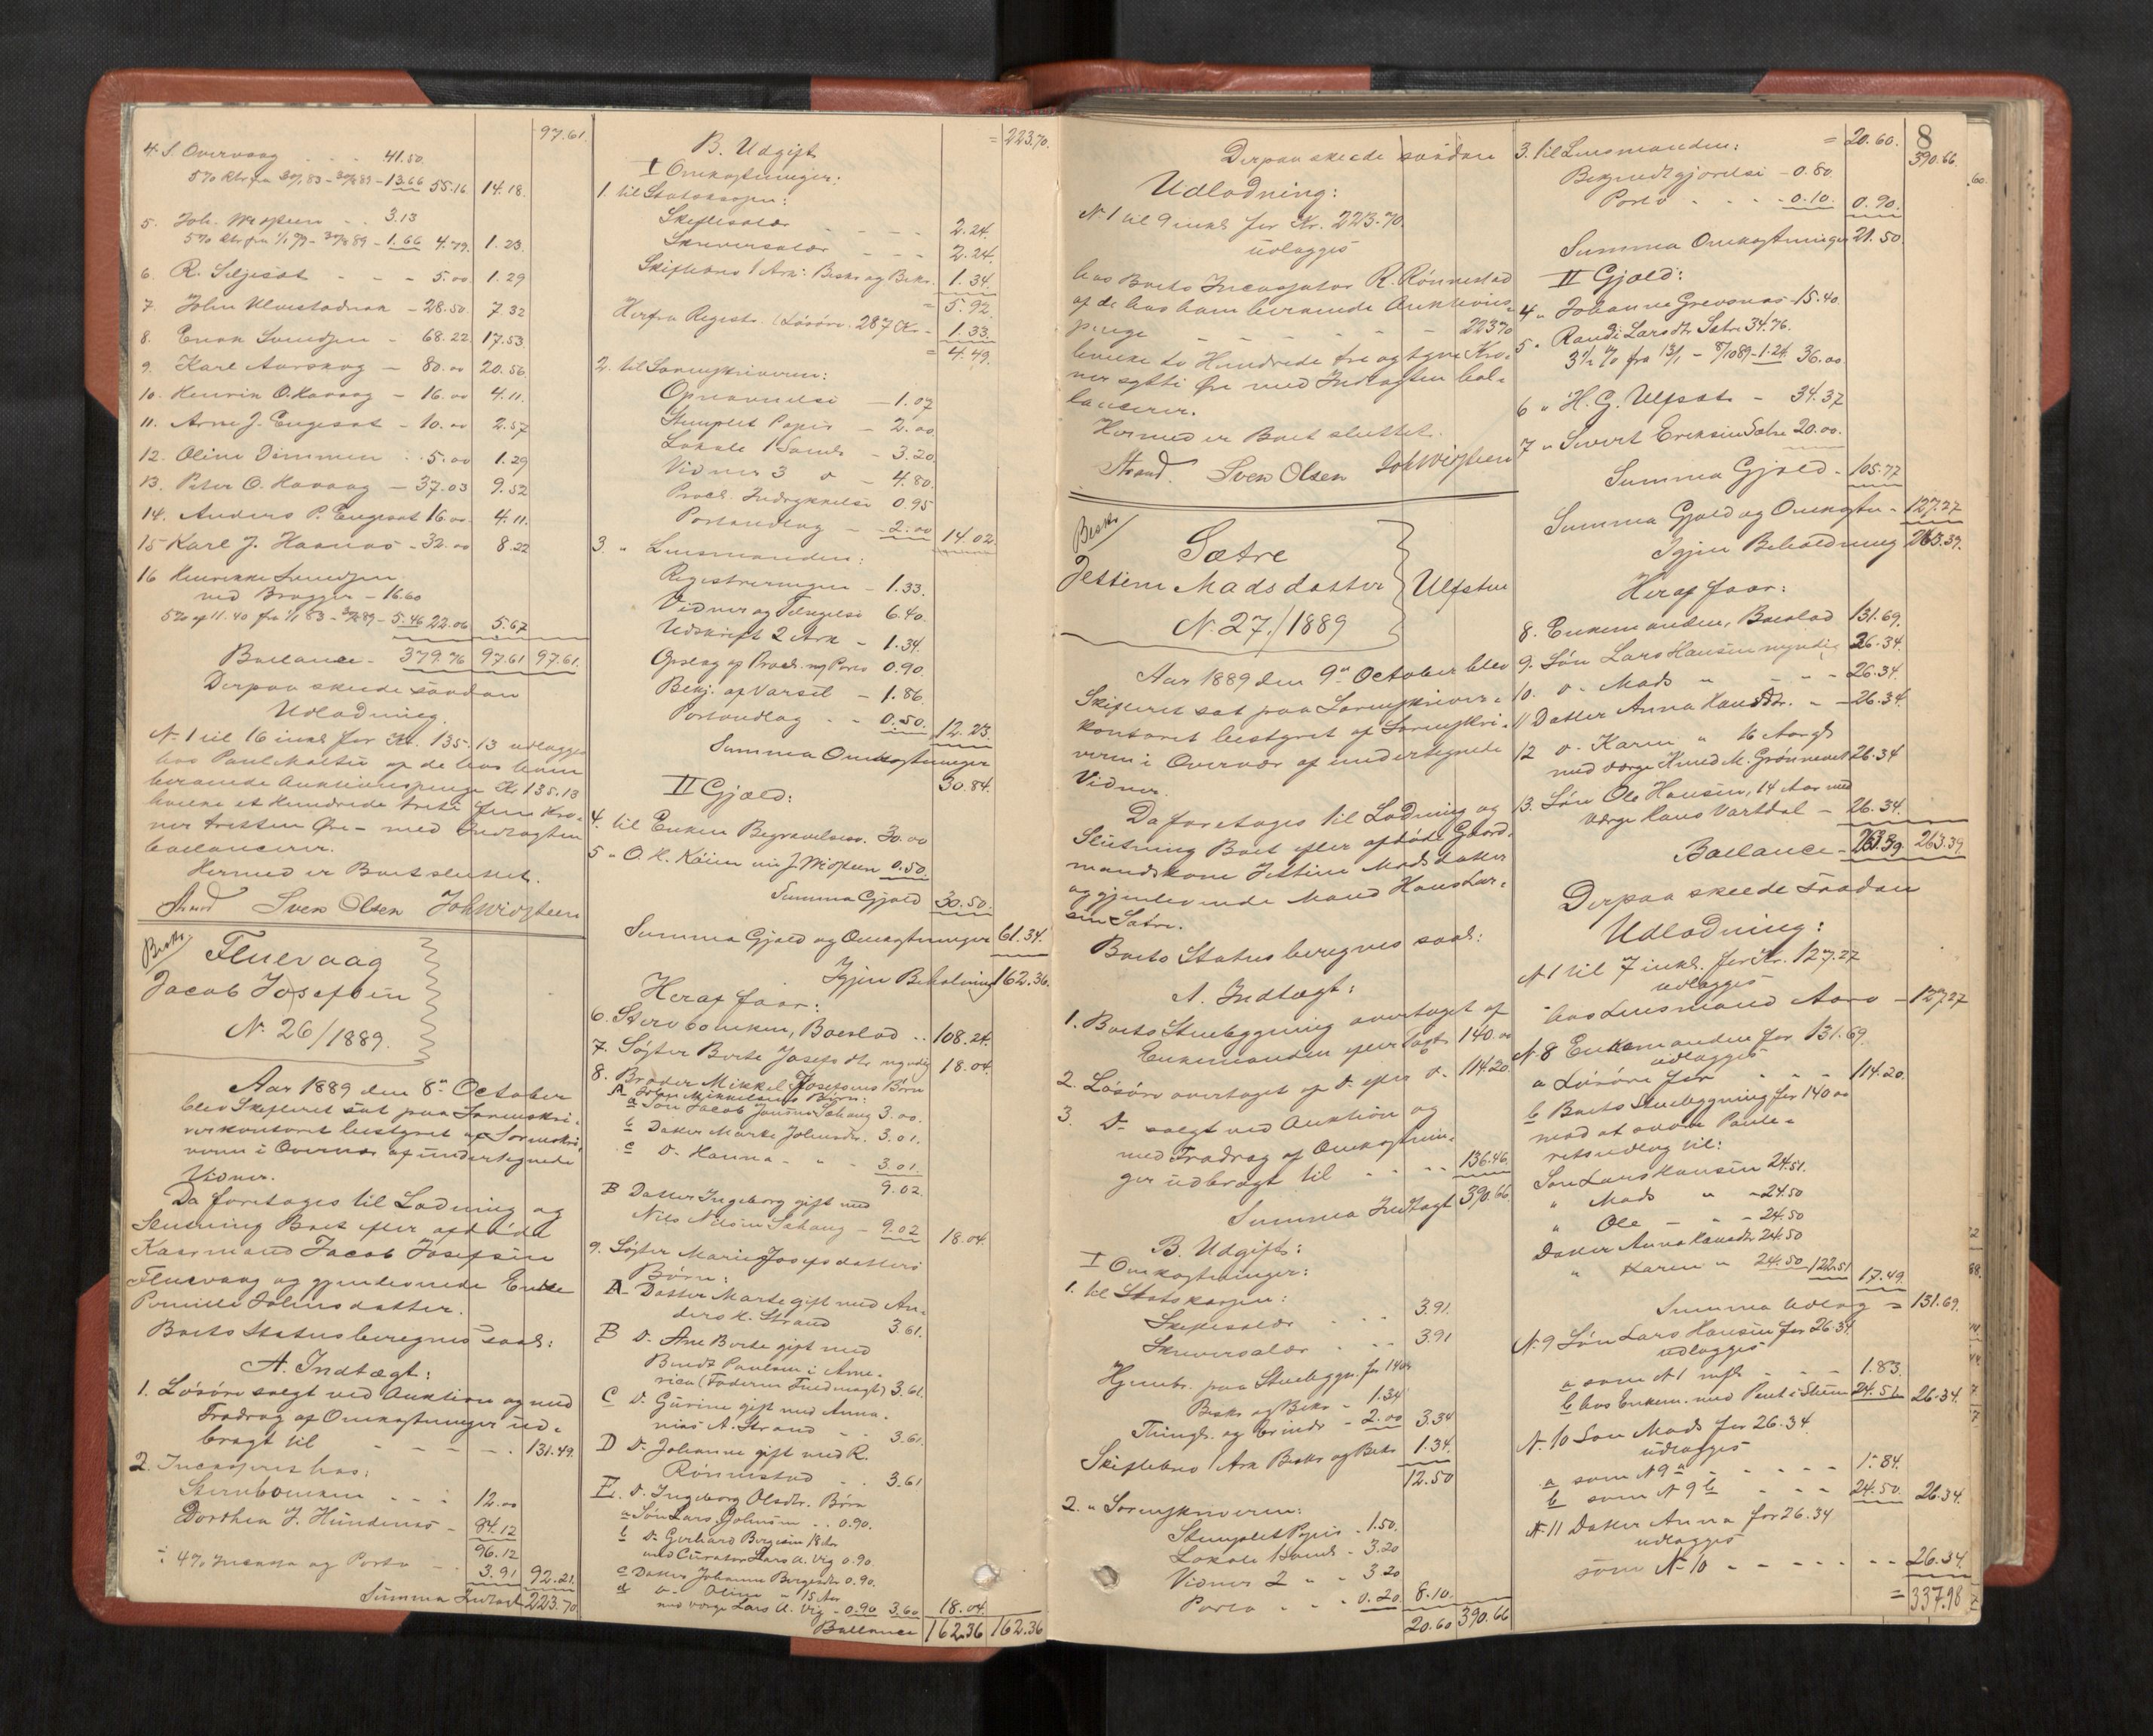 97.61.
4. S. Overvaag . . . 41.50.
5% Rtr fra 30/1 83 - 30/8 89 - 13.66 55.16 14.18.
5. Joh. . . 3.13
5% Rtr fra 1/1 79 - 30/8 89 - 1.66 4.79. 1.23.
6. R. Seljeset - - - 5.00. 1.29
7. John - 28.50. 7 32
8. Enok Svendsen - 68.22. 17.53.
9. Karl Aurskog - 80.00 20.56.
10. Henrik O. Kavaag - 16.00 4.11.
11. Arne J. Engeset - 10.00 2.57
12. Oline Dimmen . . 5.00 1.29
13. Peter O. Kavaag - 37.03 9.52
14. Anders P. Engeset 16.00. 4.11.
15 Karl J. Haanes - 32.00 8.22
16 Henrikke Svendsen
ved Brugger - 16.60
5% af 11.40 fra 1/1 83 - 30/8 89 - 5.46 22.06 5.67
Ballance - 379.76 97.61 97.61.
Derpaa skeede saadan
Udlodning.
No 1 til 16 inkl for Kr. 135.13 udlægges
hos Paul af de hos ham
beroende Auktionspenge Kr 135.13
hvilke et Hundrede treti fem Kro-
ner tretten Øre - med Indtægten
ballancerer.
Hermed er Boet sluttet.
Strand Sven Olsen Joh Wigsteen
Beskr.
Fluevaag
Jacob Josefsen
No 26/1889.
Aar 1889 den 8de October
blev Skifteret sat paa Sorenskri-
verkontoret bestyret af Sorenskri-
veren i Overvær af undertegnede
Vidner.
Da foretoges til Lodning og
Slutning Boet efter afdøde
Kaarmand Jacob Josefsen
Fluevaag og gjenlevende Enke
Pernille Johnsdatter.
Boets Status beregnes saal:
A. Indtægt:
1. Løsøre solgt ved Auktion og med
Fradrag af Omkostninger ud-
bragt til - - - - . 131.49.
2. Incasseret hos:
Stervboenken - - - 12.00
Dorthea J. Hundenes - 84.12
96.12
÷ 4% Incasso og Porto - 3.91 92.21.
Summa Indtægt 223.70
B. Udgift = 223.70.
I Omkostninger:
1. til Statskassen:
Skiftesalær - - - - 2.24.
Skriversalær - - - 2.24.
Skiftebrev 1 Ark: Beskr og Bekr. 1.34.
= 5.92.
Herfra Registr. i Løsøre. 287 Kr - 1.33.
= 4.49.
2. til Sorenskriveren:
Opnævnelse - 1.07
Stemplet Papir - 2.00.
Lokale 1 Saml. - 3.20.
Vidner 3 do - 4.80.
Procl. Indrykkelse 0.95
Portoudlæg - 2.00 14.02.
3. " Lensmanden:
Registreringen - 1.33.
Vidner og Tilsigelse 6.40.
Udskrift 2 Ark - 1.34.
Opslag af Procl. m/ Porto 0.90.
Bekj. af Varsel - 1.86.
Portoudlæg . . 0.50. 12.23.
Summa Omkostninger 30.84.
II Gjæld:
4. til Enken Begravelsesv. 30.00
5 " O. K. Køien 0.50.
Summa Gjæld 30.50.
Summa Gjæld og Omkostninger 61.34.
Igjen Beholdning 162.36.
Heraf faar:
6. Stervboenken, Boeslod . . 108.24.
7. Søster Berte Josefs dtr. myndig 18.04.
8. Broder Mikkel Josefsens Børn
A John Mikkelsens Børn:
a Søn Jacob Johnsen Sahaug 3.00.
b Datter Marte Johnsdtr. 3.01.
c D. Hanna - " - 3.01.
9.02.
B Datter Ingeborg gift med
Nils Nilsen Sahaug - 9.02 18.04.
9. Søster Marie Josefsdatters
Børn:
A Datter Marte gift med An-
ders K. Strand 3.61.
B D. Ane Berte gift med
Bendt Paulsen i Ame-
rica (Faderen Fuldmægt.) 3.61.
C D. Gurine gift med Anna-
nias A. Strand . . 3.61.
D D. Johanne gift med R.
Rønnestad . . 3.61
E. D. Ingeborg Olsdtr. Børn
a Søn Lars Johnsen . . 0.90.
b D. Gerhard Borgesen 18 Aar
med Curator Lars A. Vig 0.90.
c Datter Johanne Borgesdtr 0.90.
d D. Oline - 15 Aar
med værge Lars A. Vig - 0.90 3.60 18.04.
Ballance 162.36 162.36
Derpaa skeede saadan
Udlodning:
No 1 til 9 inkl for Kr. 223.70.
udlægges
hos Boets Incassator R. Rønnestad
af de hos ham beroende Auktions-
penge - - - - 223.70
hvilke to Hundrede tre og tyve Kro-
ner sytti Øre med Indtægten bal-
lancerer.
Hermed er Boet sluttet.
Strand. Sven Olsen Joh Wigsteen
Beskr
Sætre
Jettine Madsdatter Ulfsten
No 27./1889
Aar 1889 den 9de October blev
Skifteret sat paa Sorenskriver-
kontoret bestyret af Sorenskri-
veren i Overvær af undertegnede
Vidner.
Da foretoges til Lodning og
Slutning Boet efter afdøde Gaard-
mandskone Jettine Madsdatter
og gjenlevende Mand Hans Lar-
sen Sætre.
Boets Status beregnes saal:
A. Indtægt:
1. Boets Stuebygning overtaget af
Enkemanden efter Taxt 140.00
2. Løsøre overtaget af D. efter D. 114.20.
3. D. solgt ved Auktion og
med Fradrag af Omkostnin-
ger udbragt til - - - 136.46.
Summa Indtægt 390.66.
B. Udgift:
I Omkostninger:
1. til Statskassen:
Skiftesalær - - - 3.91.
Skriversalær - - - 3.91
Hjemb. paa Stuebygn. for 140 Kr
Beskr og Bekr - 1.34
Thingl. og Grundb - 2.00 3.34
Skiftebrev 1 Ark Beskr og Bekr 1.34.
12.50
2. " Sorenskriveren:
Stemplet Papir - 1.50.
Lokale 1 Saml - 3.20
Vidner 2 " - 3.20
Porto - - - 0.20. 8.10.
20.60 390.66
8
3. til Lensmanden: = 20.60. 390.66.
Bekjendtgjørelse - 0.80.
Porto - - - 0.10. 0.90.
Summa Omkostninger 21.50.
II Gjæld:
4 " Johanne Grevsnæs - 15.40.
5 " Randi Larsdtr Sætre 34.76.
3½ % fra 13/1 - 8/10 89 - 1.24. 36.00
6 " H. G. Ulfsten - 34.37
7 " Sivert Eriksen Sætre 20.00.
Summa Gjæld - 105.77
Summa Gjæld og Omkostn - 127.27
Igjen Beholdning 263.39.
Heraf faar:
8. Enkemanden, Boeslod 131.69.
9. Søn Lars Hansen myndig 26.34.
10. D. Mads " - - - 26.34.
11 Datter Anna Hansdtr. " - 26.34.
12 D. Karen " 16 Aar gl
med værge Knud M. Grønnevet 26.34
13. Søn Ole Hansen, 14 Aar med
værge Hans Vartdal - 26.34.
Ballance - 263.39 263.39
Derpaa skeede saadan
Udlodning:
No 1 til 7 inkl. for Kr. 127.27
udlægges
hos Lensmand Aarø - 127.27
No 8 Enkemanden for 131.69.
udlægges
a Løsøre for - - - 114.20.
b Boets Stuebygning for 140.00
mod at svare Pante-
retsudlæg til:
Søn Lars Hansen 24.51.
" Mads " - 24.50
" Ole - " - 24.50
Datter Anna Hansdtr 24.50
" Karen " 24.50 122.51 17.49.
Summa Udlæg = 131.69.
No 9 Søn Lars Hansen for 26.34.
udlægges
a som No 1 mfl - - - 1.83.
b hos Enkem. med Pant i Stuen 24.51 26.34.
No 10 Søn Mads for 26.34.
udlægges
a som No 9 a - - - - 1.84.
b som No 9 b - - - 24.50. 26.34.
No 11 Datter Anna for 26.34
udlægges
som No 10 - - - - - 26.34.
= 337.98